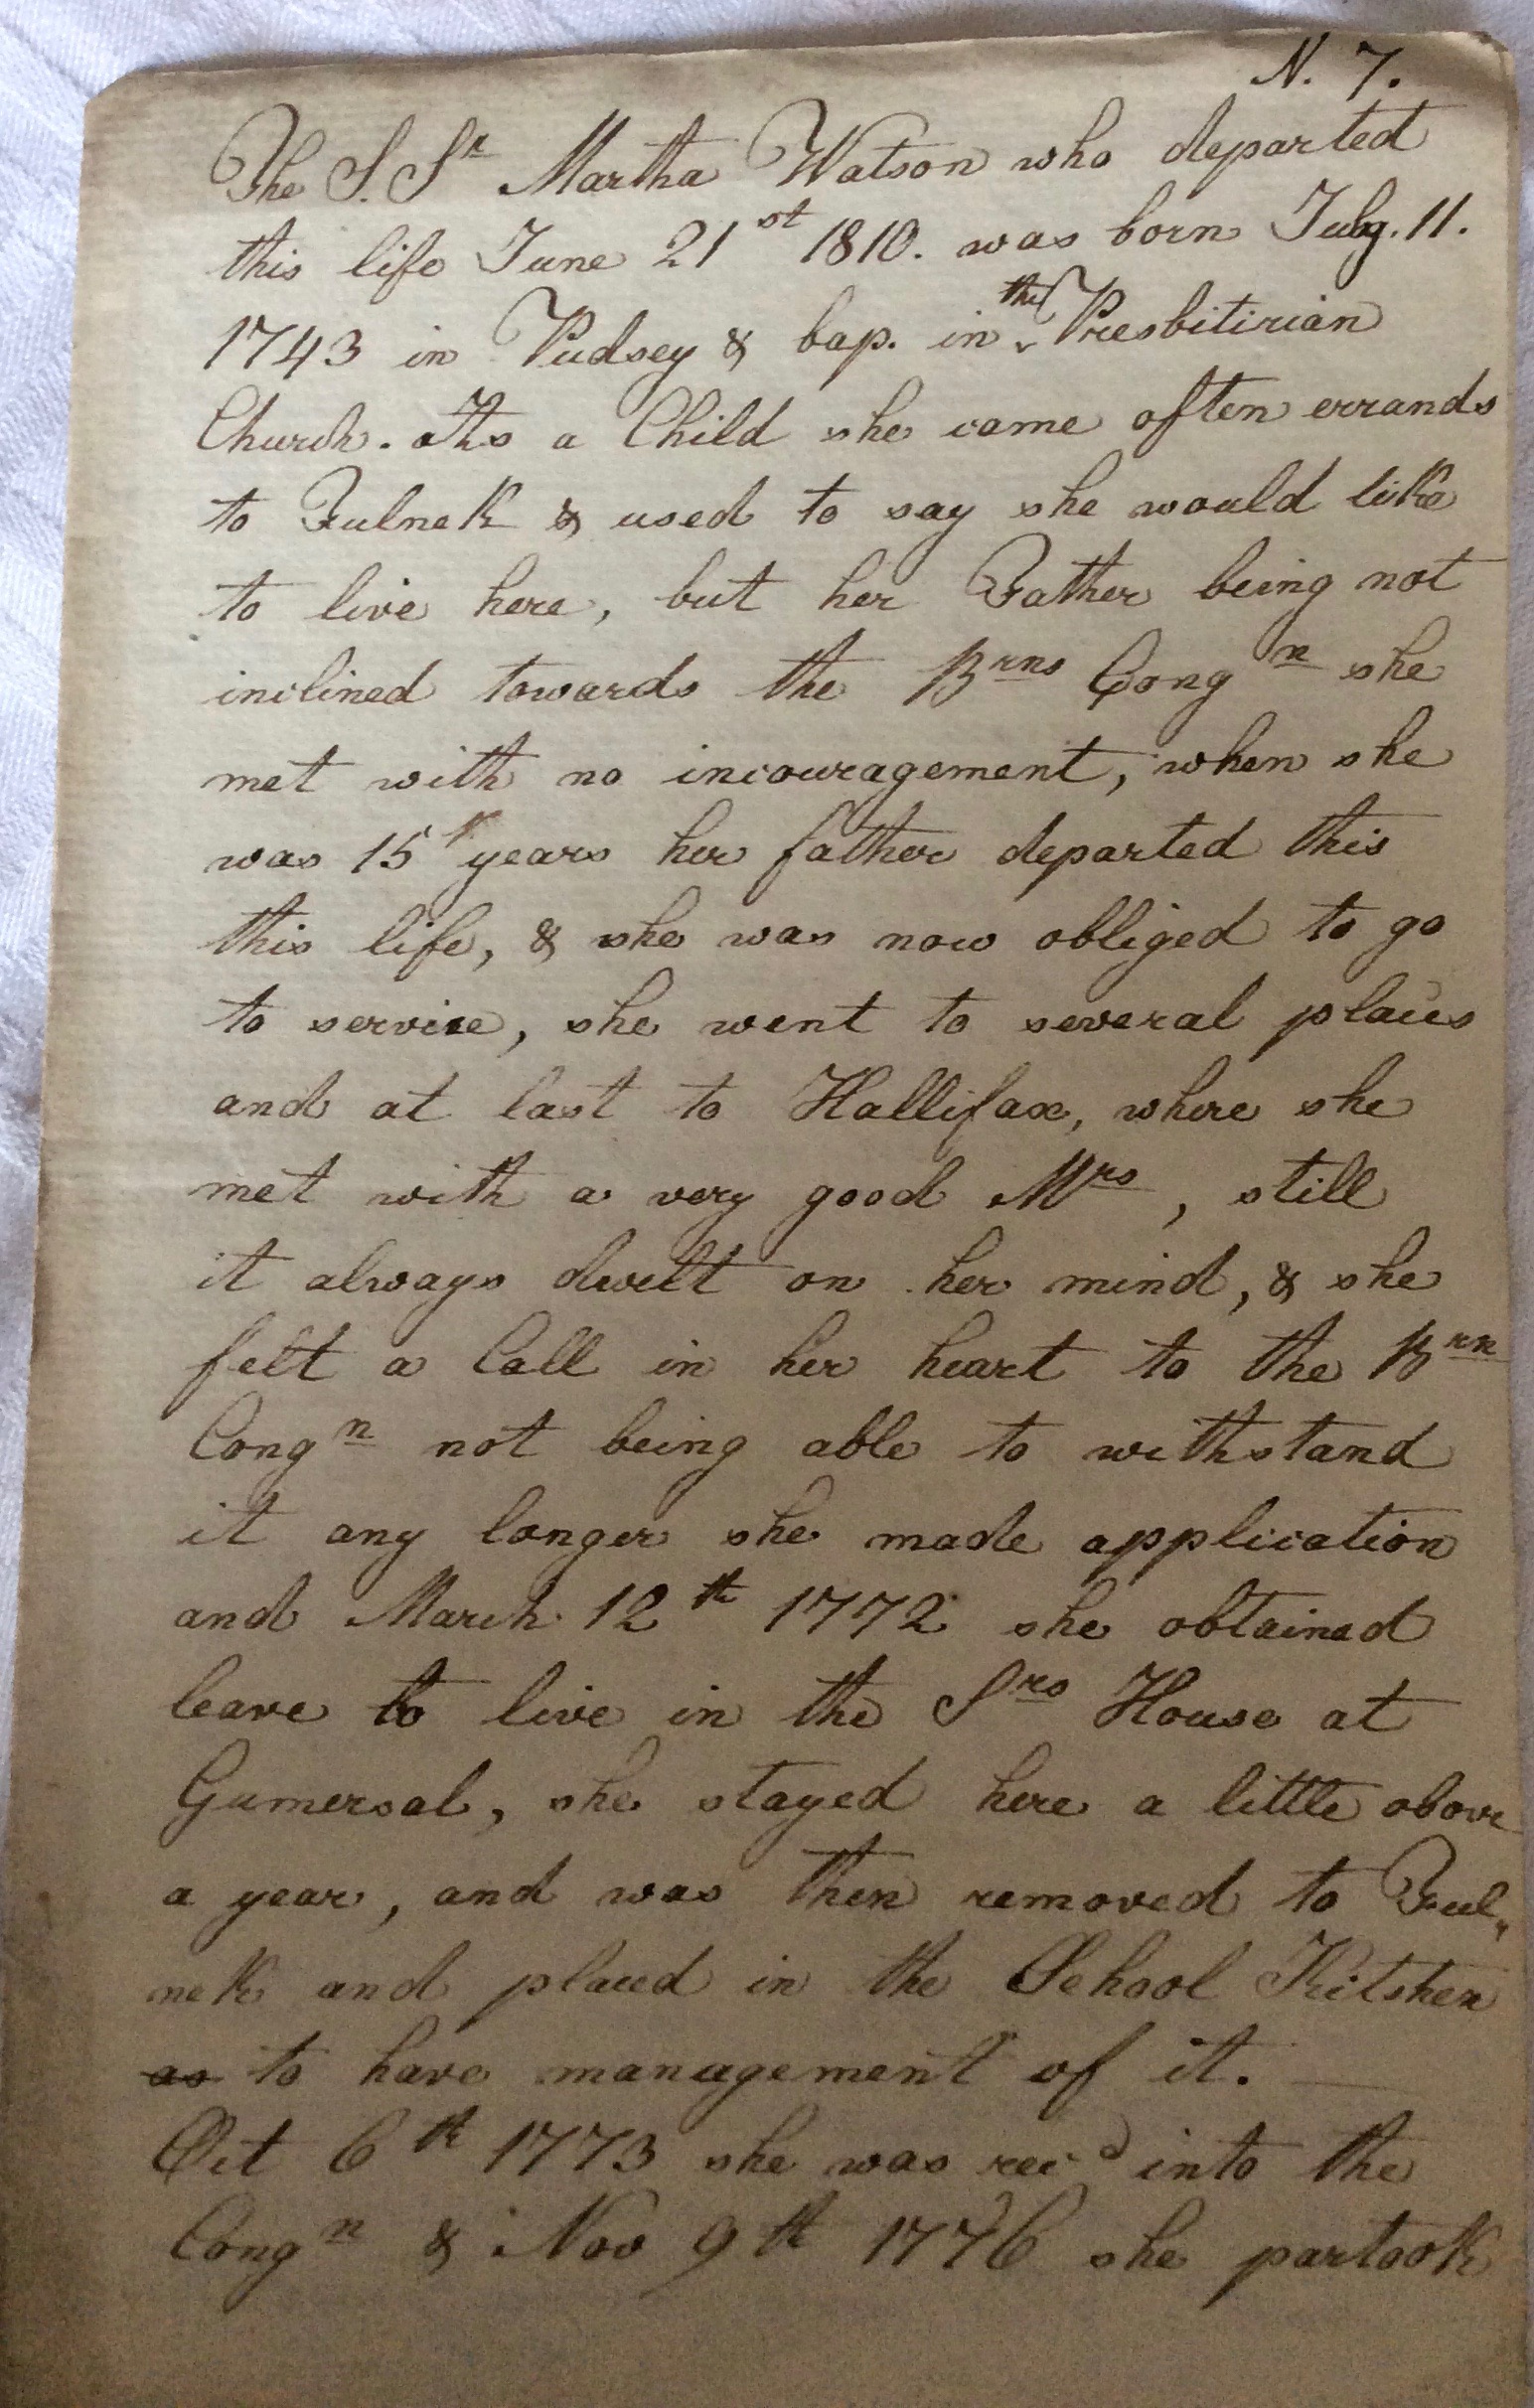 N. 7.
The S. Sr Martha Watson who departed
this life June 21st 1810. was born July. 11.
1743 in Pudsey & bap. in the Presbitirian
Church. As a Child she came often errands
to Fulnek & used to say she would like
to live here, but her Father being not
inclined towards the Brns Congn she
met with no incouragement, when she
was 15 years her father departed this
this life, & she was now obliged to go
to service, she went to several places
and at last to Hallifax, where she
met with a very good Mrs, still
it always dwelt on her mind, & she
felt a Call in her heart to the Brn
Congn not being able to withstand
it any longer she made application
and March 12th 1772 she obtained
leave to live in the Srs House at
Gumersal, she stayed here a little above
a year, and was then removed to Ful„
nek and placed in the School Kitshen
as to have management of it.
Oct 6th 1773 she was recd into the
Congn & Nov 9th 1776 she partook